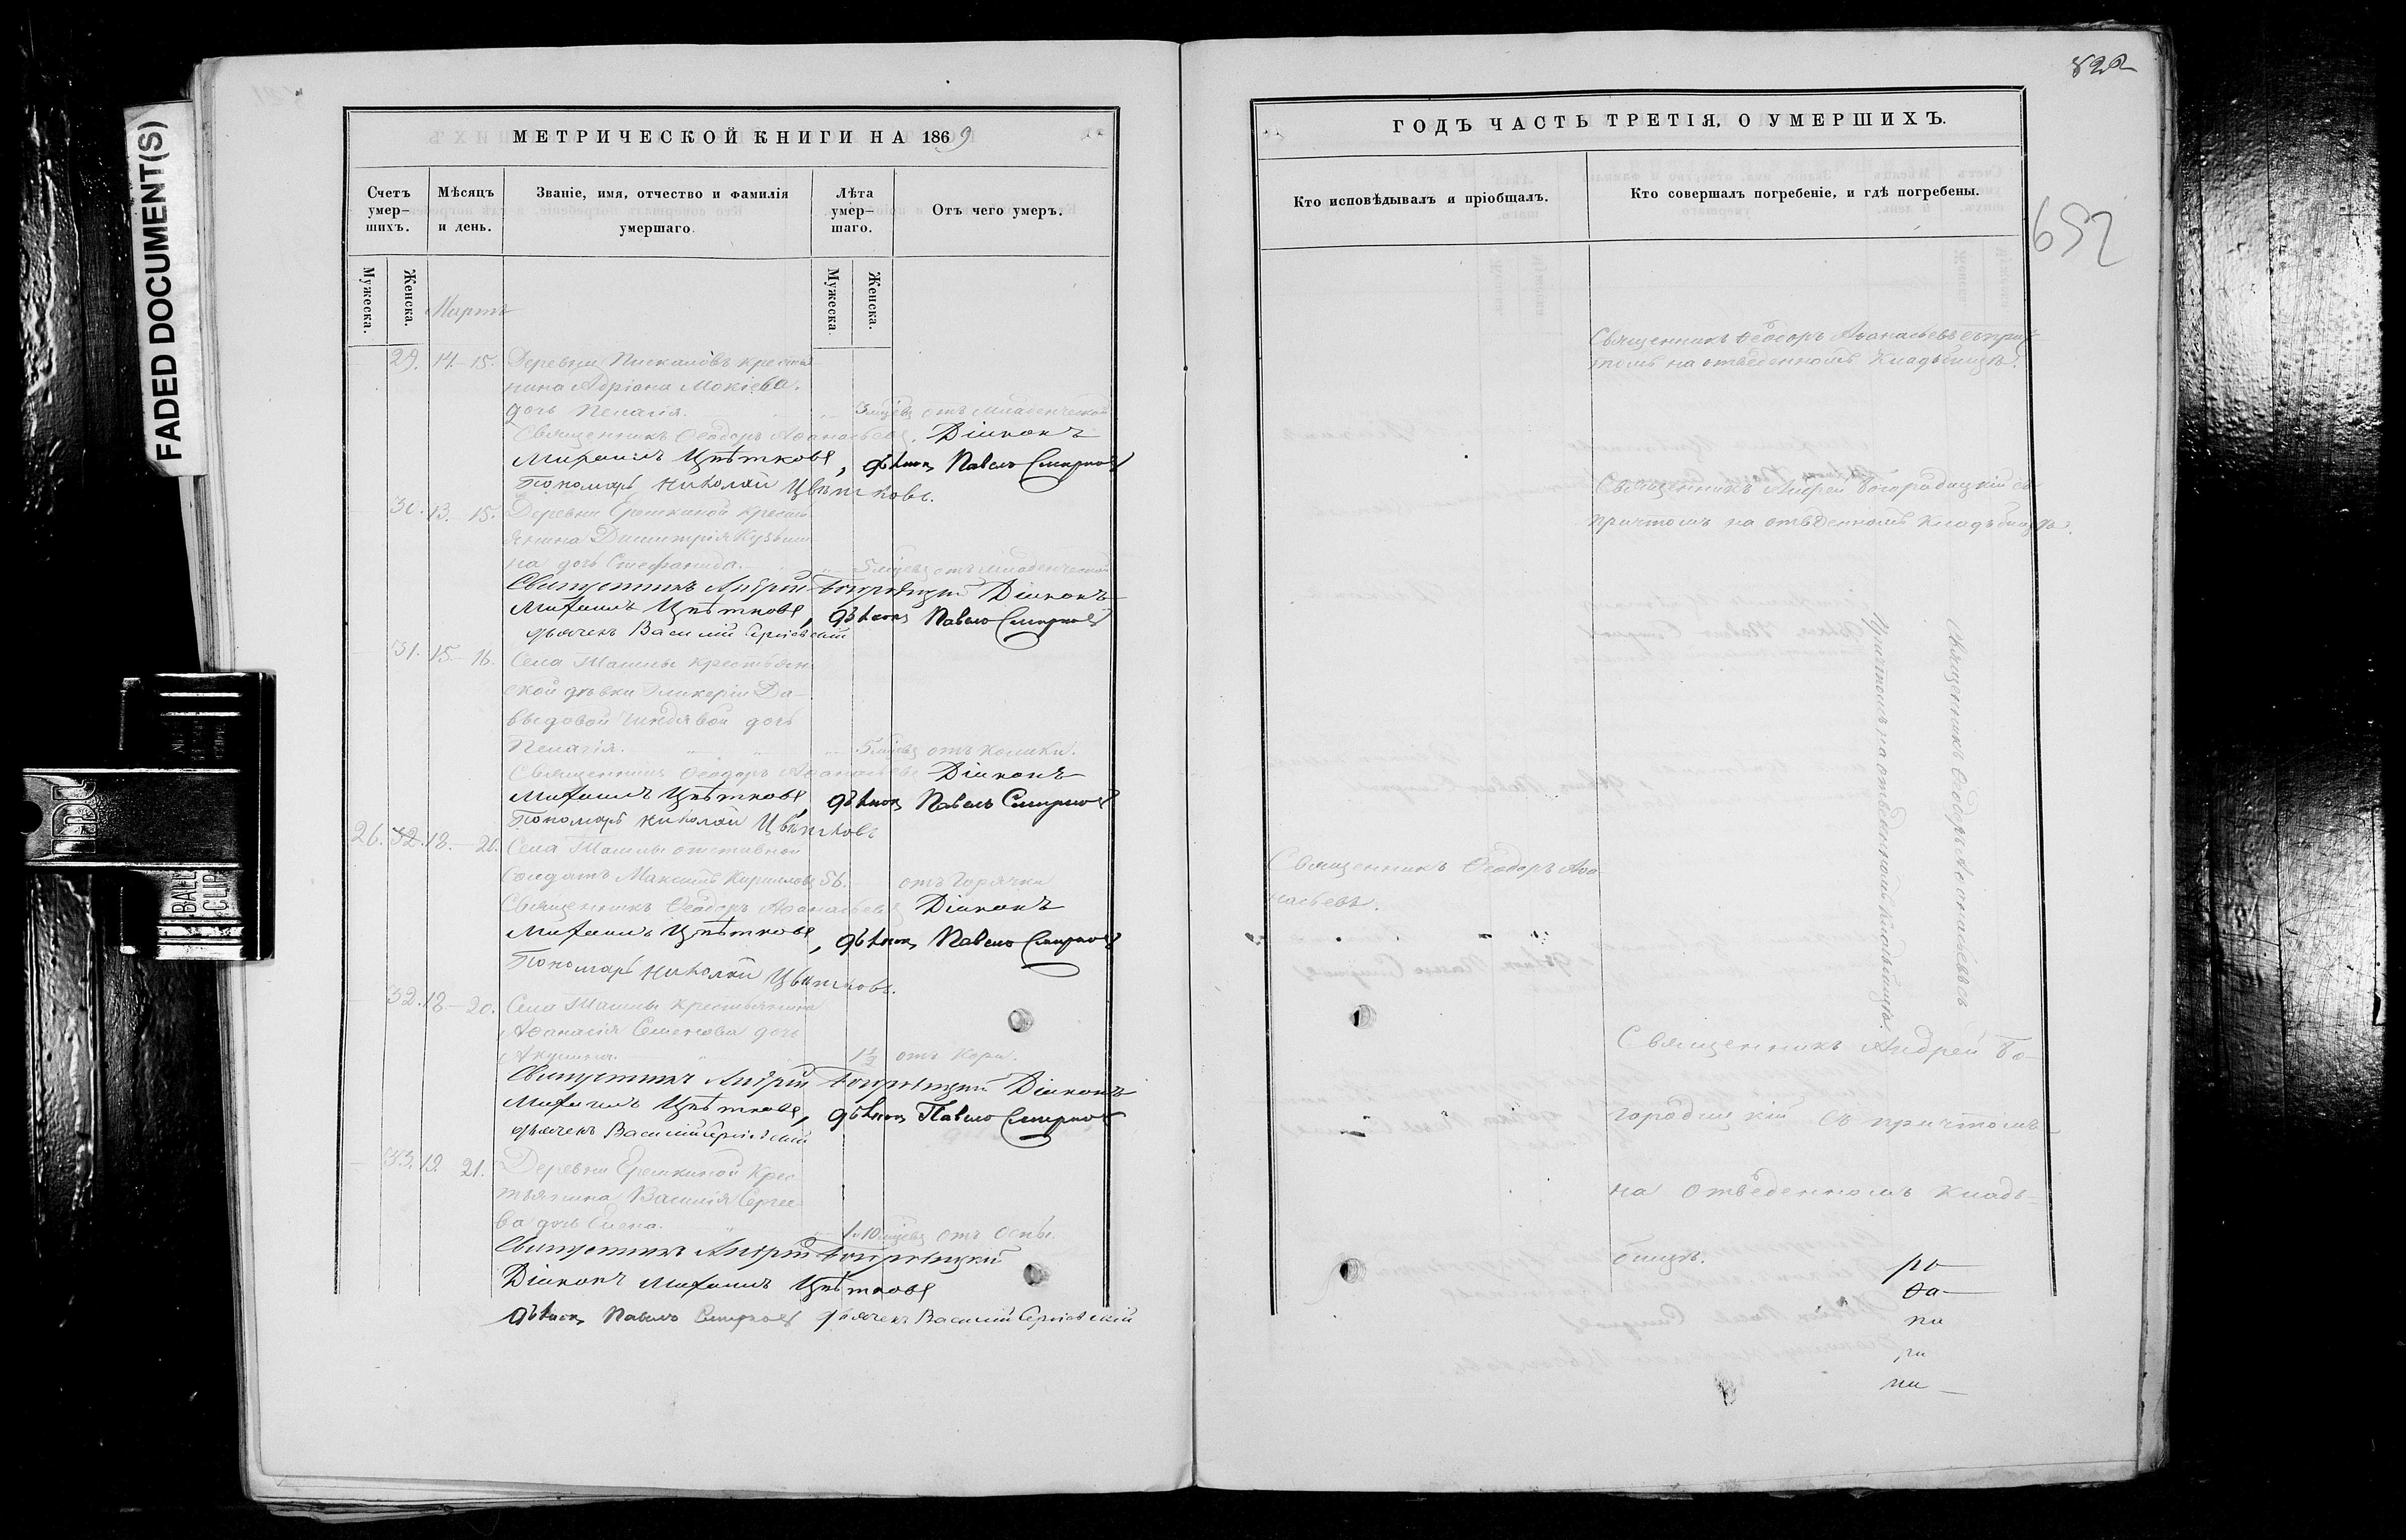 FADED DOCUMENT(S)
BALL
CLIP
МЕТРИЧЕСКОЙ КНИГИ НА 1869
Счетъ умер-шихъ.
Мѣсяцъ и день.
Званіе, имя, отчество и фамилія умершаго.
Лѣта умер-шаго.
Отъ чего умеръ.
Мужеска.
Женска.
Мартъ
Мужеска
Женска.
29. 14. 15. Деревни Пискаловъ крестья-
нина Адріана Мокіева
дочь Пелагія. 3 мцевъ отъ младенческой
Священникъ Ѳеодоръ Аѳанасьевъ. Діаконъ
Михаилъ Цвѣтковъ, дьячекъ Павелъ Смирновъ
Пономарь Николай Цвѣтковъ.
30. 13. 15. Деревни Ерыкиной кресть-
янина Димитрія Кузьми-
на дочь Стефанида. 5 мцевъ отъ младенческой
Священникъ Андрей Богородицкій Діаконъ
Михаилъ Цвѣтковъ, дьячекъ Павелъ Смирновъ
дьячекъ Василій Сергіевскій
31. 15. 16. Села Ташлы крестьян-
ской дѣвки Гликеріи Да-
выдовой дочь
Пелагія. 5 мцевъ отъ колики.
Священникъ Ѳеодоръ Аѳанасьевъ Діаконъ
Михаилъ Цвѣтковъ, дьячекъ Павелъ Смирновъ
Пономарь Николай Цвѣтковъ
26. 32. 18. 20. Села Ташлы отставной
солдатъ Максимъ Кирилловъ 56. отъ горячки
Священникъ Ѳеодоръ Аѳанасьевъ Діаконъ
Михаилъ Цвѣтковъ, дьячекъ Павелъ Смирновъ
Пономарь Николай Цвѣтковъ.
32. 18. 20. Села Ташлы крестьянина
Аѳанасія Семенова дочь
Акулина. 1½ отъ Кори.
Священникъ Андрей Богородицкій Діаконъ
Михаилъ Цвѣтковъ, дьячекъ Павелъ Смирновъ
дьячекъ Василій Сергіевскій
33. 19. 21. Деревни Ерыкиной Крес-
тьянина Василія Сергее-
ва дочь Елена. 1. 10 мцевъ отъ Оспы.
Священникъ Андрей Богородицкій
Діаконъ Михаилъ Цвѣтковъ
дьячекъ Павелъ Смирновъ дьячекъ Василій Сергіевскій
822
652
ГОДЪ ЧАСТЬ ТРЕТІЯ, О УМЕРШИХЪ.
Кто исповѣдывалъ и пріобщалъ.
Кто совершалъ погребеніе, и гдѣ погребены.
Священникъ Ѳеодоръ Аѳанасьевъ съ прич-
томъ на отведенномъ кладбищѣ.
Священникъ Андрей Богородицкій съ
причтомъ на отведенномъ кладбищѣ.
Священникъ Ѳеодоръ Аѳанасьевъ съ
причтомъ на отведенномъ кладбищѣ.
Священникъ Ѳеодоръ Аѳа-
насьевъ.
Священникъ Андрей Бо-
городицкій съ причтомъ
на отведенномъ клад-
бищѣ.